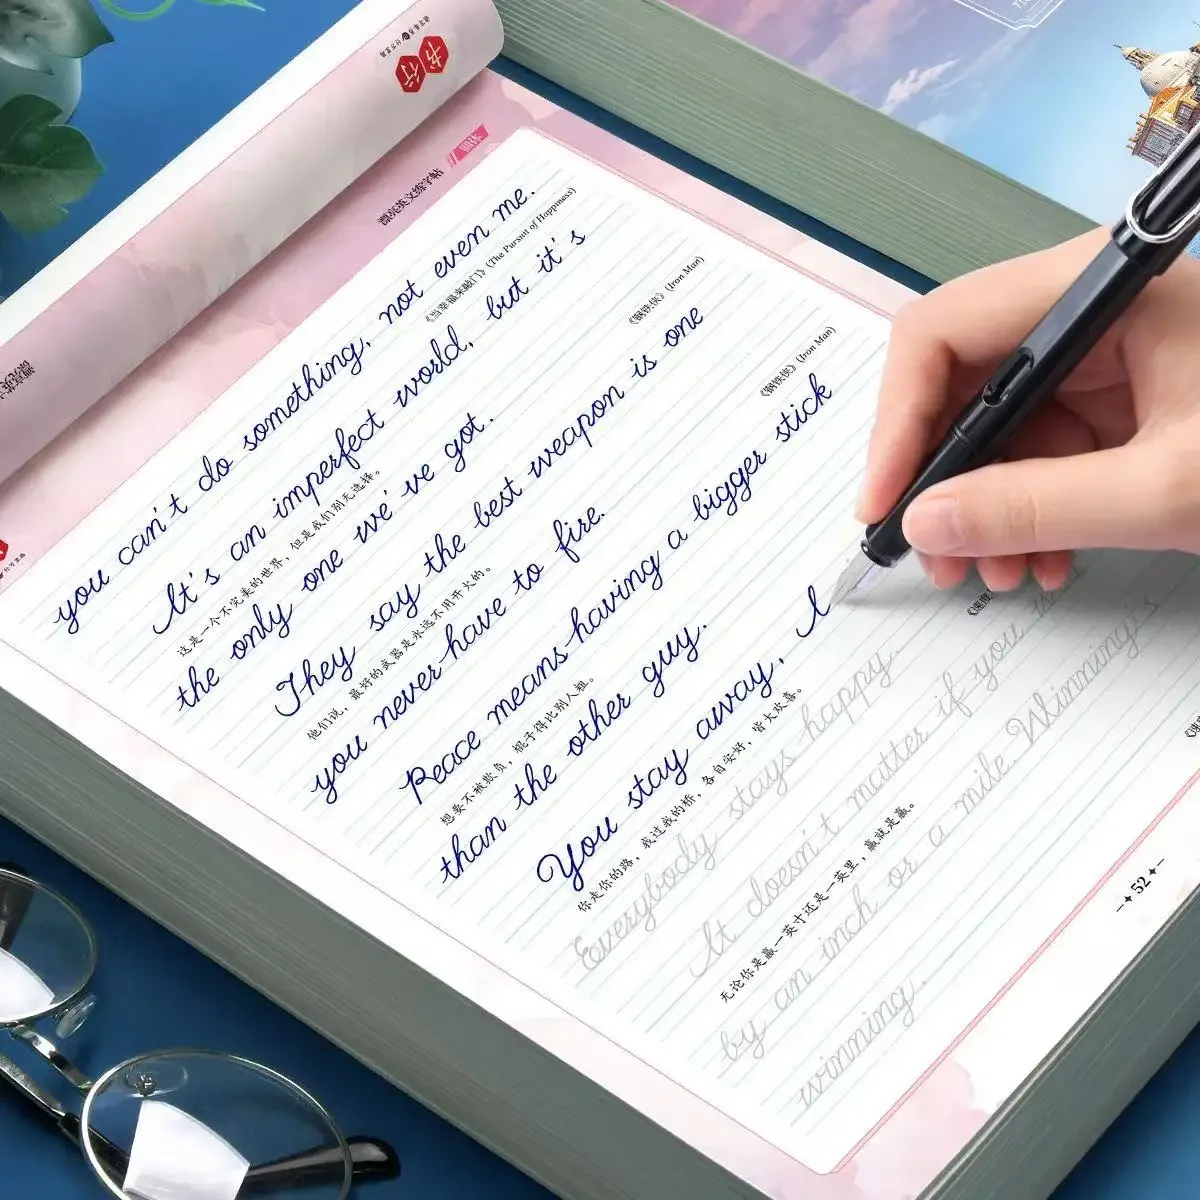 书行
漂亮英文练字帖
you can't do something, not even me.
《当幸福来敲门》(The Pursuit of Happiness)
It's an imperfect world, but it's
这是一个不完美的世界，但是我们别无选择。
the only one we've got.
《钢铁侠》(Iron Man)
They say the best weapon is one
他们说，最好的武器是永远不用开火的。
you never have to fire.
《钢铁侠》(Iron Man)
Peace means having a bigger stick
想要不被欺负，棍子得比别人粗。
than the other guy.
You stay away, I
你走你的路，我过我的桥，各自安好，皆大欢喜。
Everybody stays happy.
《速度
It doesn't matter if you
无论你是赢一英寸还是一英里，赢就是赢。
by an inch or a mile. Winning's
winning.
《速
52